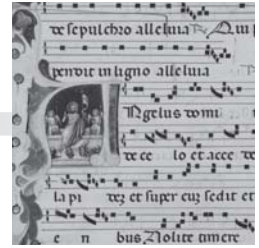 de sepulchro alleluia Qui p
pendit in ligno alleluia
Ngelus domi
de ce lo et acce de
la pi dez et super euz sedit et
e n bus Nolite timere